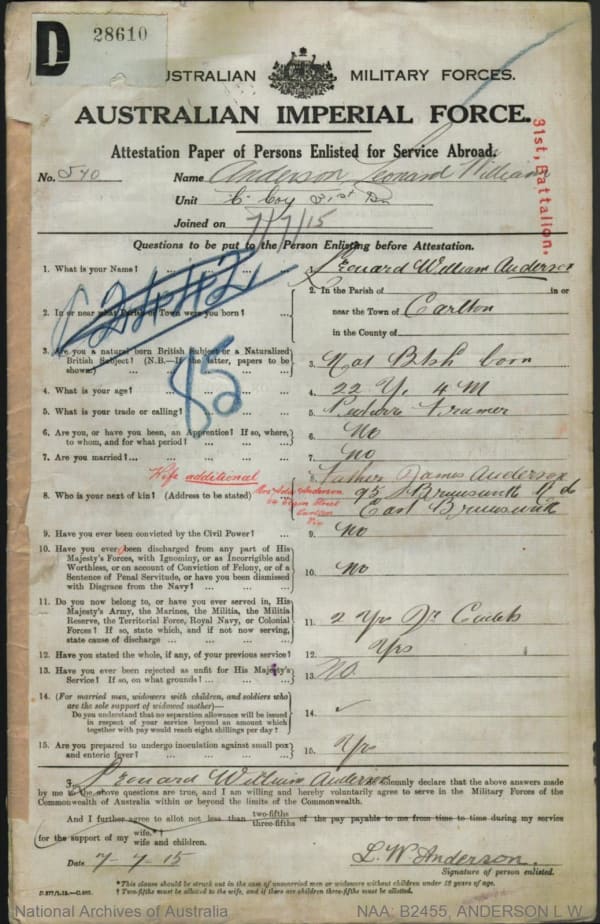 D 28610
AUSTRALIAN MILITARY FORCES.
AUSTRALIAN IMPERIAL FORCE.
31st, Battalion,
Attestation Paper of Persons Enlisted for Service Abroad.
No. 540 Name Anderson Leonard William
Unit C. Coy 31st Bn
Joined on 7/7/15
Questions to be put to the Person Enlisting before Attestation.
1. What is your Name? ... ... ... 1. Leonard William Anderson
2. In or near what Parish or Town were you born? ... 2. In the Parish of in or
near the Town of Carlton
in the County of
3. Are you a natural born British Subject or a Naturalized
British Subject? (N.B.—If the latter, papers to be
shown) ... ... 3. Nat Btsh born
85
4. What is your age? ... ... 4. 22 Y. 4 M
5. What is your trade or calling? ... ... 5. Picture Framer
6. Are you, or have you been, an Apprentice? If so, where,
to whom, and for what period? ... ... 6. No
7. Are you married? ... ... 7. No
Wife additional
8. Who is your next of kin? (Address to be stated) ... 8. Father James Anderson
Mrs Anderson
Street
Carlton
Vic
95 Brunswick Rd
East Brunswick
9. Have you ever been convicted by the Civil Power? ... 9. No
10. Have you ever been discharged from any part of His
Majesty's Forces, with Ignominy, or as Incorrigible and
Worthless, or on account of Conviction of Felony, or of a
Sentence of Penal Servitude, or have you been dismissed
with Disgrace from the Navy? ... ... 10. No
11. Do you now belong to, or have you ever served in, His
Majesty's Army, the Marines, the Militia, the Militia
Reserve, the Territorial Force, Royal Navy, or Colonial
Forces? If so, state which, and if not now serving,
state cause of discharge ... ... 11. 2 Yrs Jr Cadets
12. Have you stated the whole, if any, of your previous service? 12. Yes
13. Have you ever been rejected as unfit for His Majesty's
Service? If so, on what grounds? ... ... 13. No.
14. (For married men, widowers with children, and soldiers who
are the sole support of widowed mother)—
Do you understand that no separation allowance will be issued
in respect of your service beyond an amount which
together with pay would reach eight shillings per day? 14. ✓
15. Are you prepared to undergo inoculation against small pox
and enteric fever? ... ... 15. Yes
I, Leonard William Anderson solemnly declare that the above answers made
by me to the above questions are true, and I am willing and hereby voluntarily agree to serve in the Military Forces of the
Commonwealth of Australia within or beyond the limits of the Commonwealth.
And I further agree to allot not less than two-fifths three-fifths of the pay payable to me from time to time during my service
for the support of my wife.*† wife and children.
Date 7-7-15 L. W. Anderson.
Signature of person enlisted.
*This clause should be struck out in the case of unmarried men or widowers without children under 18 years of age.
† Two-fifths must be allotted to the wife, and if there are children three-fifths must be allotted.
National Archives of Australia NAA: B2455, ANDERSON L W